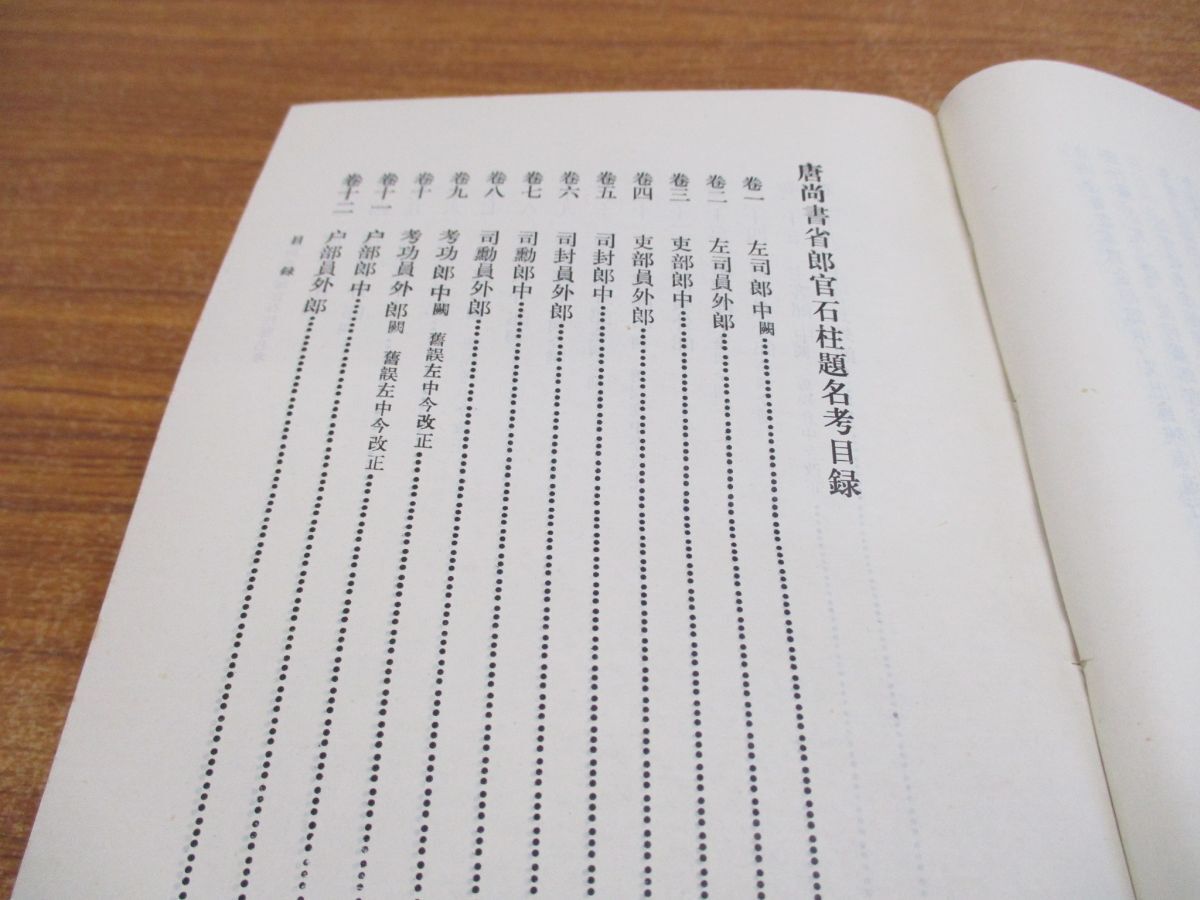 唐尚書省郎官石柱題名考目録
卷一 左司郎中闕
卷二 左司員外郎
卷三 吏部郎中
卷四 吏部員外郎
卷五 司封郎中
卷六 司封員外郎
卷七 司勳郎中
卷八 司勳員外郎
卷九 考功郎中闕 舊誤左中今改正
卷十 考功員外郎闕 舊誤左中今改正
卷十一 户部郎中
卷十二 户部員外郎
目録